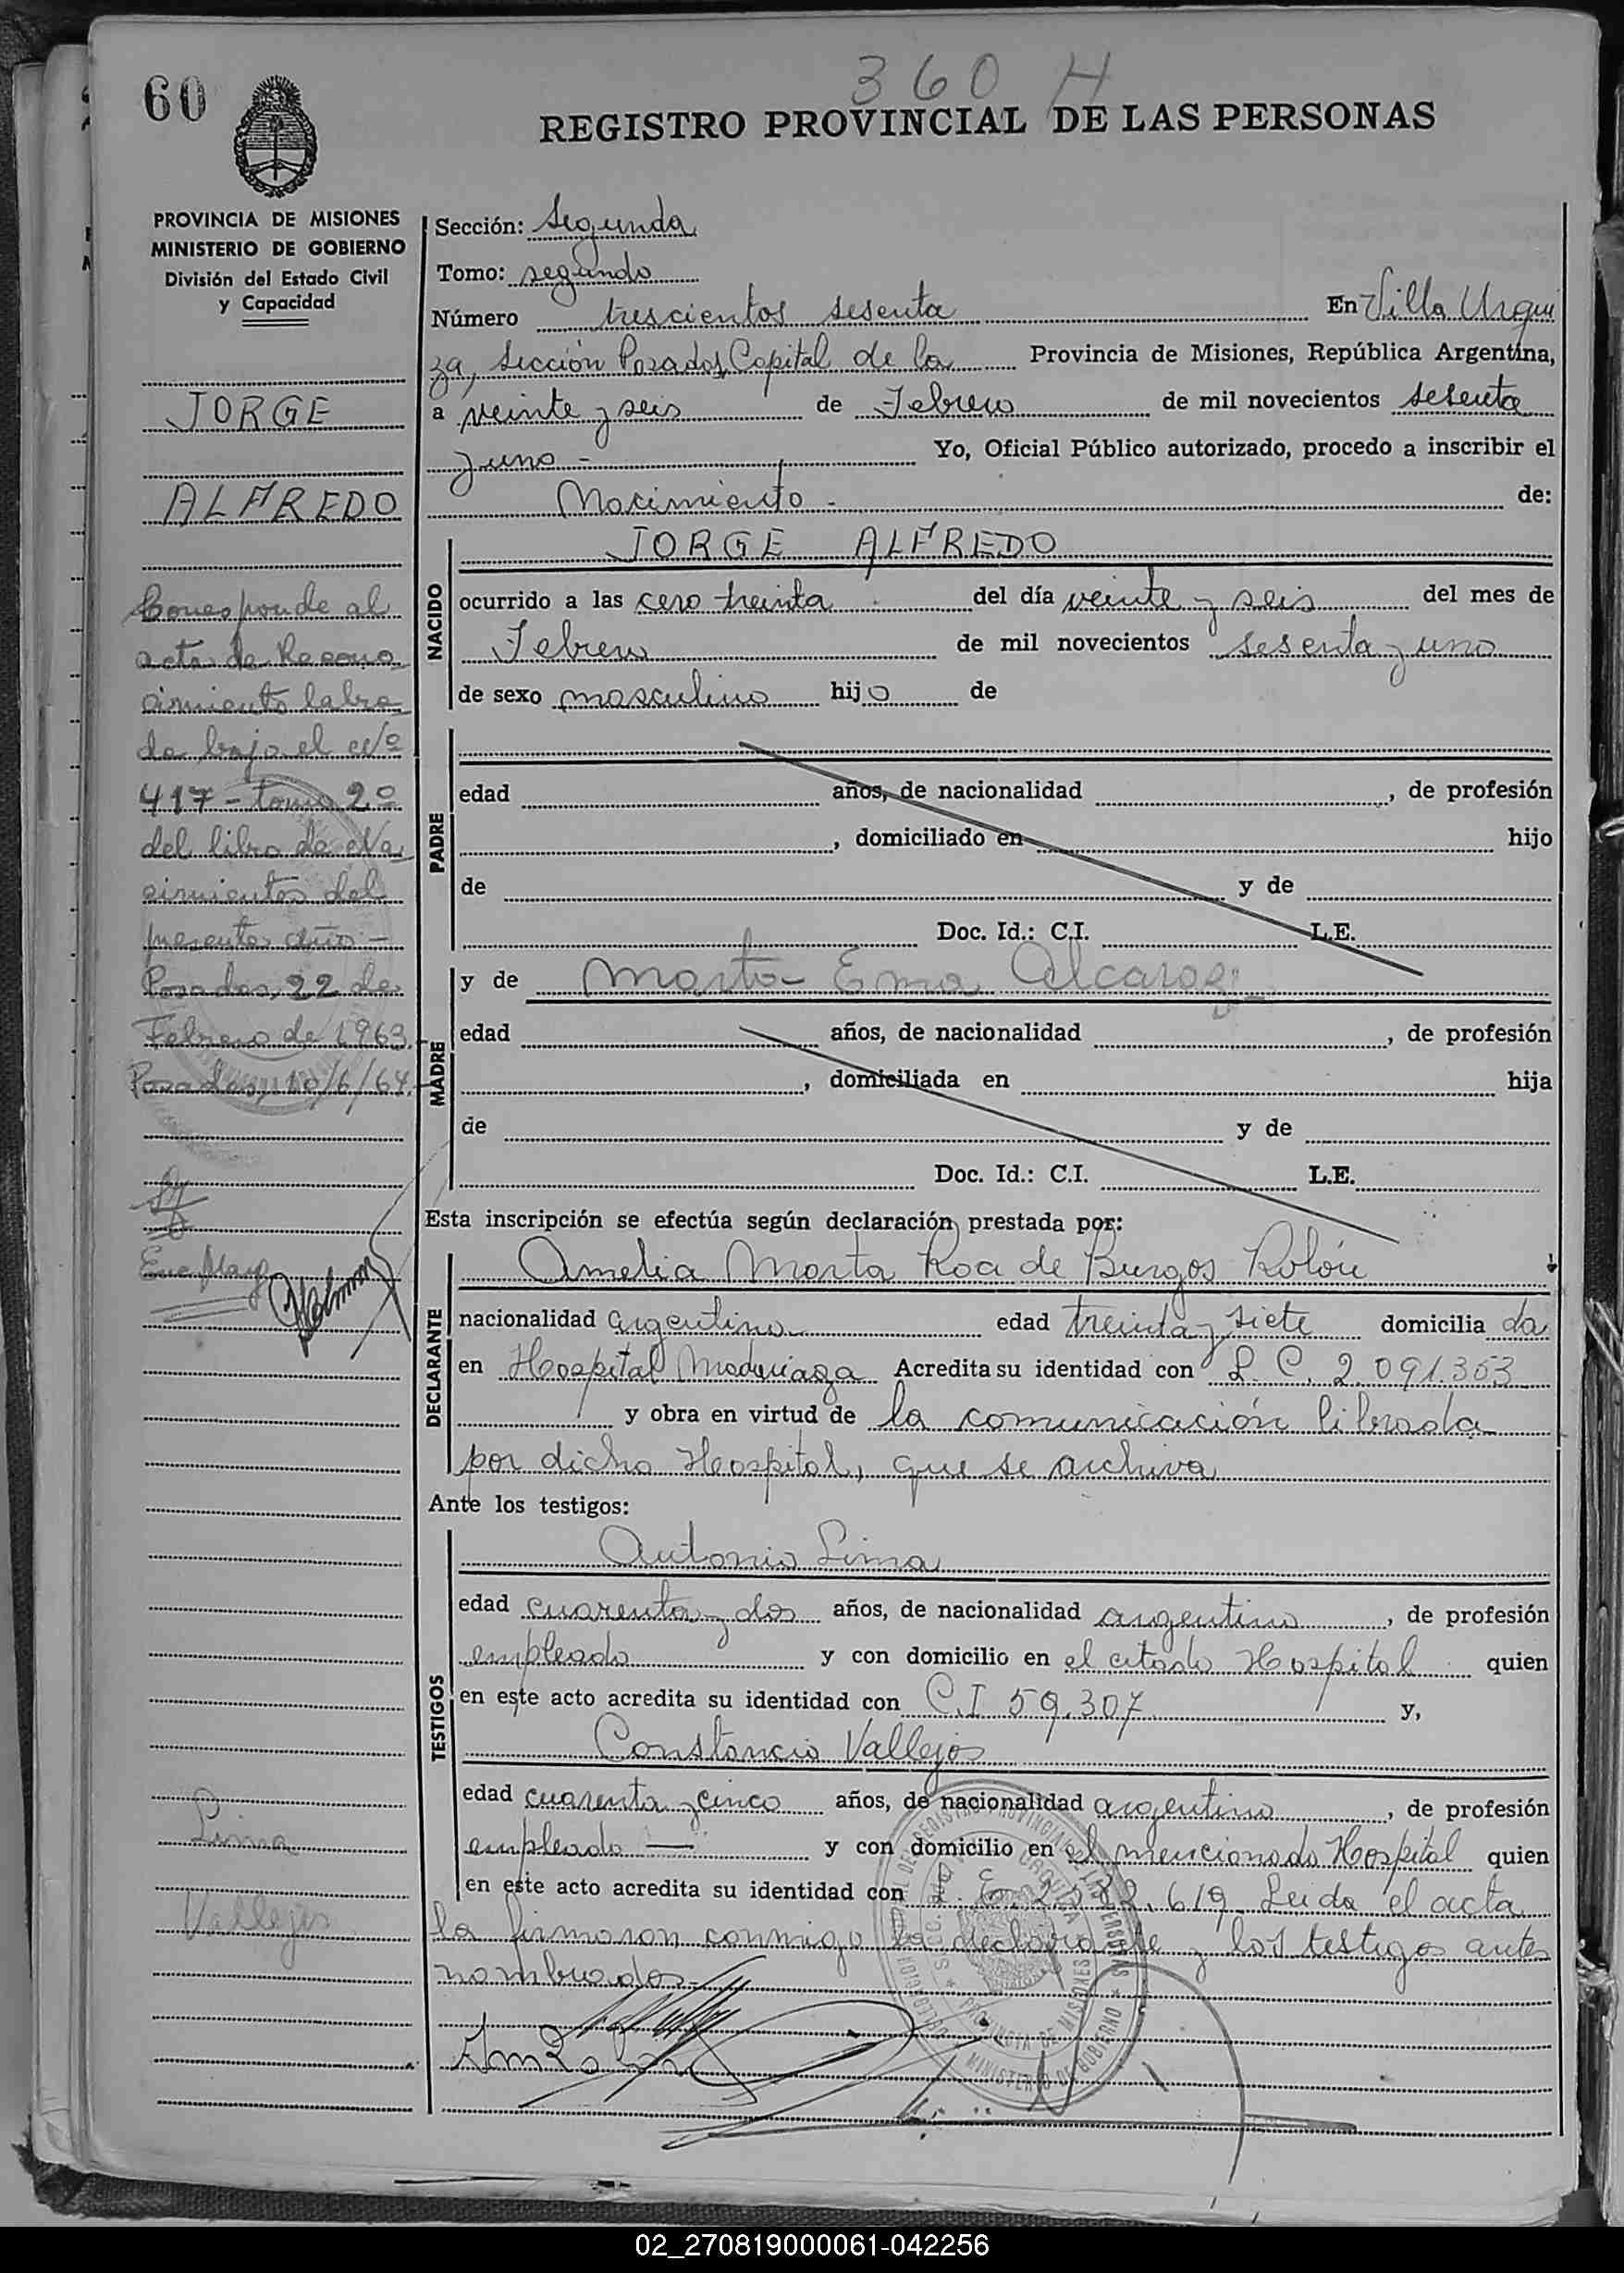 360 H
60
REGISTRO PROVINCIAL DE LAS PERSONAS
PROVINCIA DE MISIONES
MINISTERIO DE GOBIERNO
División del Estado Civil
y Capacidad
JORGE
ALFREDO
Corresponde al
acta de Recono
cimiento labra
da bajo el Nº
417 - tomo 2º
del libro de Na
cimientos del
presente año -
Posadas, 22 de
Febrero de 1963.
Posadas, 10/6/64.
Lima
Vallejos
Sección: Segunda
Tomo: segundo
Número trescientos sesenta En Villa Urqui
za, Sección Posadas, Capital de la Provincia de Misiones, República Argentina,
a veinte y seis de Febrero de mil novecientos sesenta
y uno - Yo, Oficial Público autorizado, procedo a inscribir el
Nacimiento - de:
NACIDO
JORGE ALFREDO
ocurrido a las cero treinta del día veinte y seis del mes de
Febrero de mil novecientos sesenta y uno
de sexo masculino hijo de
PADRE
edad años, de nacionalidad , de profesión
, domiciliado en hijo
de y de
Doc. Id.: C.I. L.E.
MADRE
y de Marta Ema Alcaraz
edad años, de nacionalidad , de profesión
, domiciliada en hija
de y de
Doc. Id.: C.I. L.E.
Esta inscripción se efectúa según declaración prestada por:
DECLARANTE
Amelia Marta Roa de Burgos Rolón
nacionalidad argentina edad treinta y siete domicilia da
en Hospital Madariaga Acredita su identidad con L.C. 2.091.353
y obra en virtud de la comunicación librada
por dicho Hospital, que se archiva
Ante los testigos:
TESTIGOS
Antonio Lima
edad cuarenta y dos años, de nacionalidad argentino , de profesión
empleado y con domicilio en el citado Hospital quien
en este acto acredita su identidad con C.I 59.307 y,
Constancio Vallejos
edad cuarenta y cinco años, de nacionalidad argentino , de profesión
empleado — y con domicilio en el mencionado Hospital quien
en este acto acredita su identidad con .619. Leida el acta
la firmaron conmigo la declarante y los testigos antes
nombrados.
02_270819000061-042256